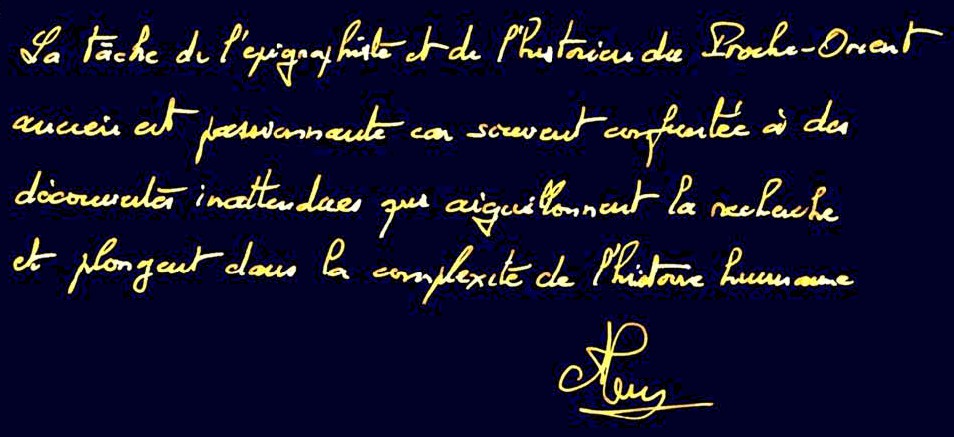 La tâche de l'épigraphiste et de l'historien du Proche-Orient
ancien est passionnante car souvent confrontée à des
découvertes inattendues qui aiguillonnent la recherche
et plongent dans la complexité de l'histoire humaine